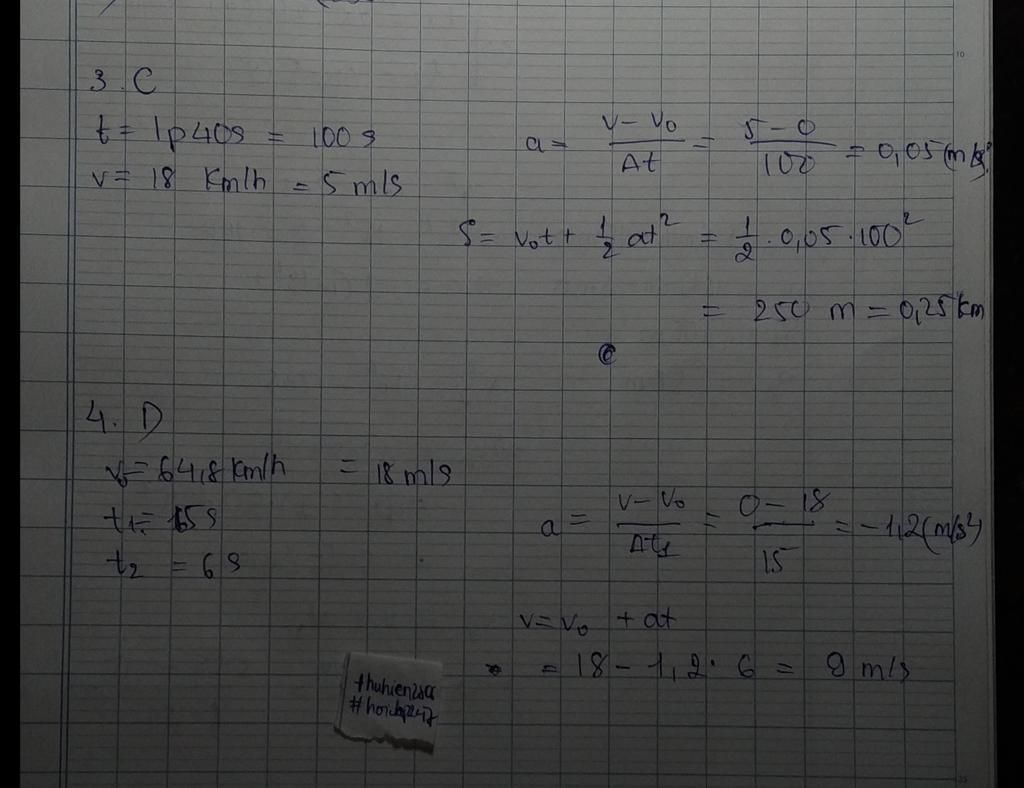 3. C
t = 1p40s = 100 s
v = 18 Km/h = 5 m/s
a = \frac{v - v₀}{Δt} = \frac{5 - 0}{100} = 0,05 (m/s²)
S = v₀t + \frac{1}{2} at² = \frac{1}{2} . 0,05 . 100²
= 250 m = 0,25 km
4. D
v₀ = 64,8 Km/h = 18 m/s
t₁ = 15 s
t₂ = 6 s
a = \frac{v - v₀}{Δt₁} = \frac{0 - 18}{15} = -1,2 (m/s²)
v = v₀ + at
= 18 - 1,2 . 6 = 9 m/s